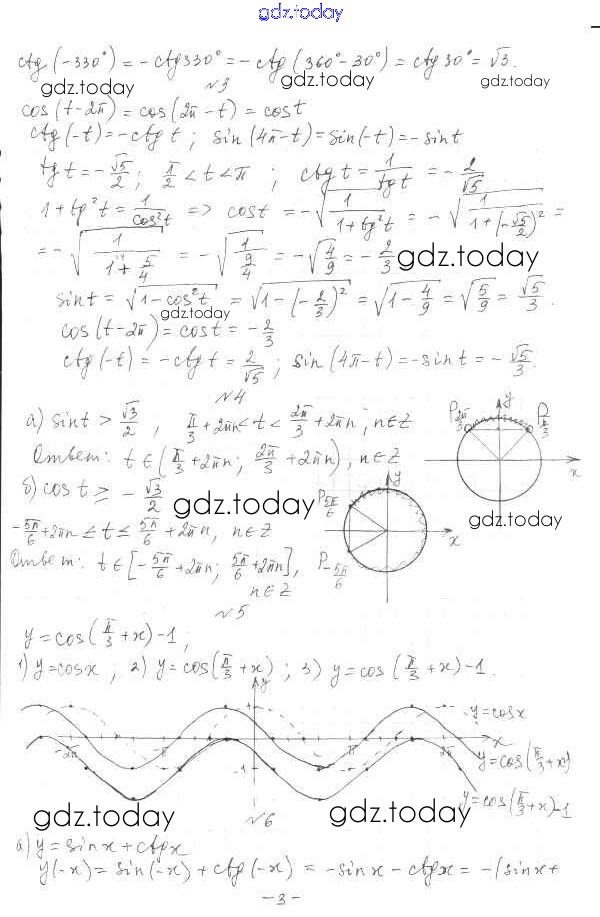 gdz.today
ctg(-330°) = -ctg330° = -ctg(360°-30°) = ctg30° = √3.
gdz.today gdz.today
№3
cos(t-2π) = cos(2π-t) = cost
ctg(-t) = -ctg t; sin(4π-t) = sin(-t) = -sint
tgt = -√5/2; π/2 < t < π; ctgt = 1/tgt = -2/√5
1+tg²t = 1/cos²t => cost = -√(1/(1+tg²t)) = -√(1/(1+(-√5/2)²)) =
= -√(1/(1+5/4)) = -√(1/(9/4)) = -√(4/9) = -2/3 gdz.today
sint = √(1-cos²t) = √(1-(-2/3)²) = √(1-4/9) = √(5/9) = √5/3.
gdz.today
cos(t-2π) = cost = -2/3
ctg(-t) = -ctgt = 2/√5; sin(4π-t) = -sint = -√5/3.
№4
а) sint > √3/2, π/3+2πn < t < 2π/3+2πn; n∈Z
P 2π/3 y P π/3 x
Ответ: t∈(π/3+2πn; 2π/3+2πn), n∈Z
б) cost ≥ -√3/2 gdz.today
P 5π/6 y x P -5π/6
gdz.today
-5π/6+2πn ≤ t ≤ 5π/6+2πn, n∈Z
Ответ: t∈[-5π/6+2πn; 5π/6+2πn],
n∈Z
№5
y = cos(π/3+x)-1;
1) y=cosx; 2) y=cos(π/3+x); 3) y=cos(π/3+x)-1.
y
y=cosx
-2π -π π 2π x
y=cos(π/3+x)
-1
y=cos(π/3+x)-1
gdz.today gdz.today
№6
а) y=sinx+ctgx
y(-x) = sin(-x)+ctg(-x) = -sinx-ctgx = -(sinx+
-3-